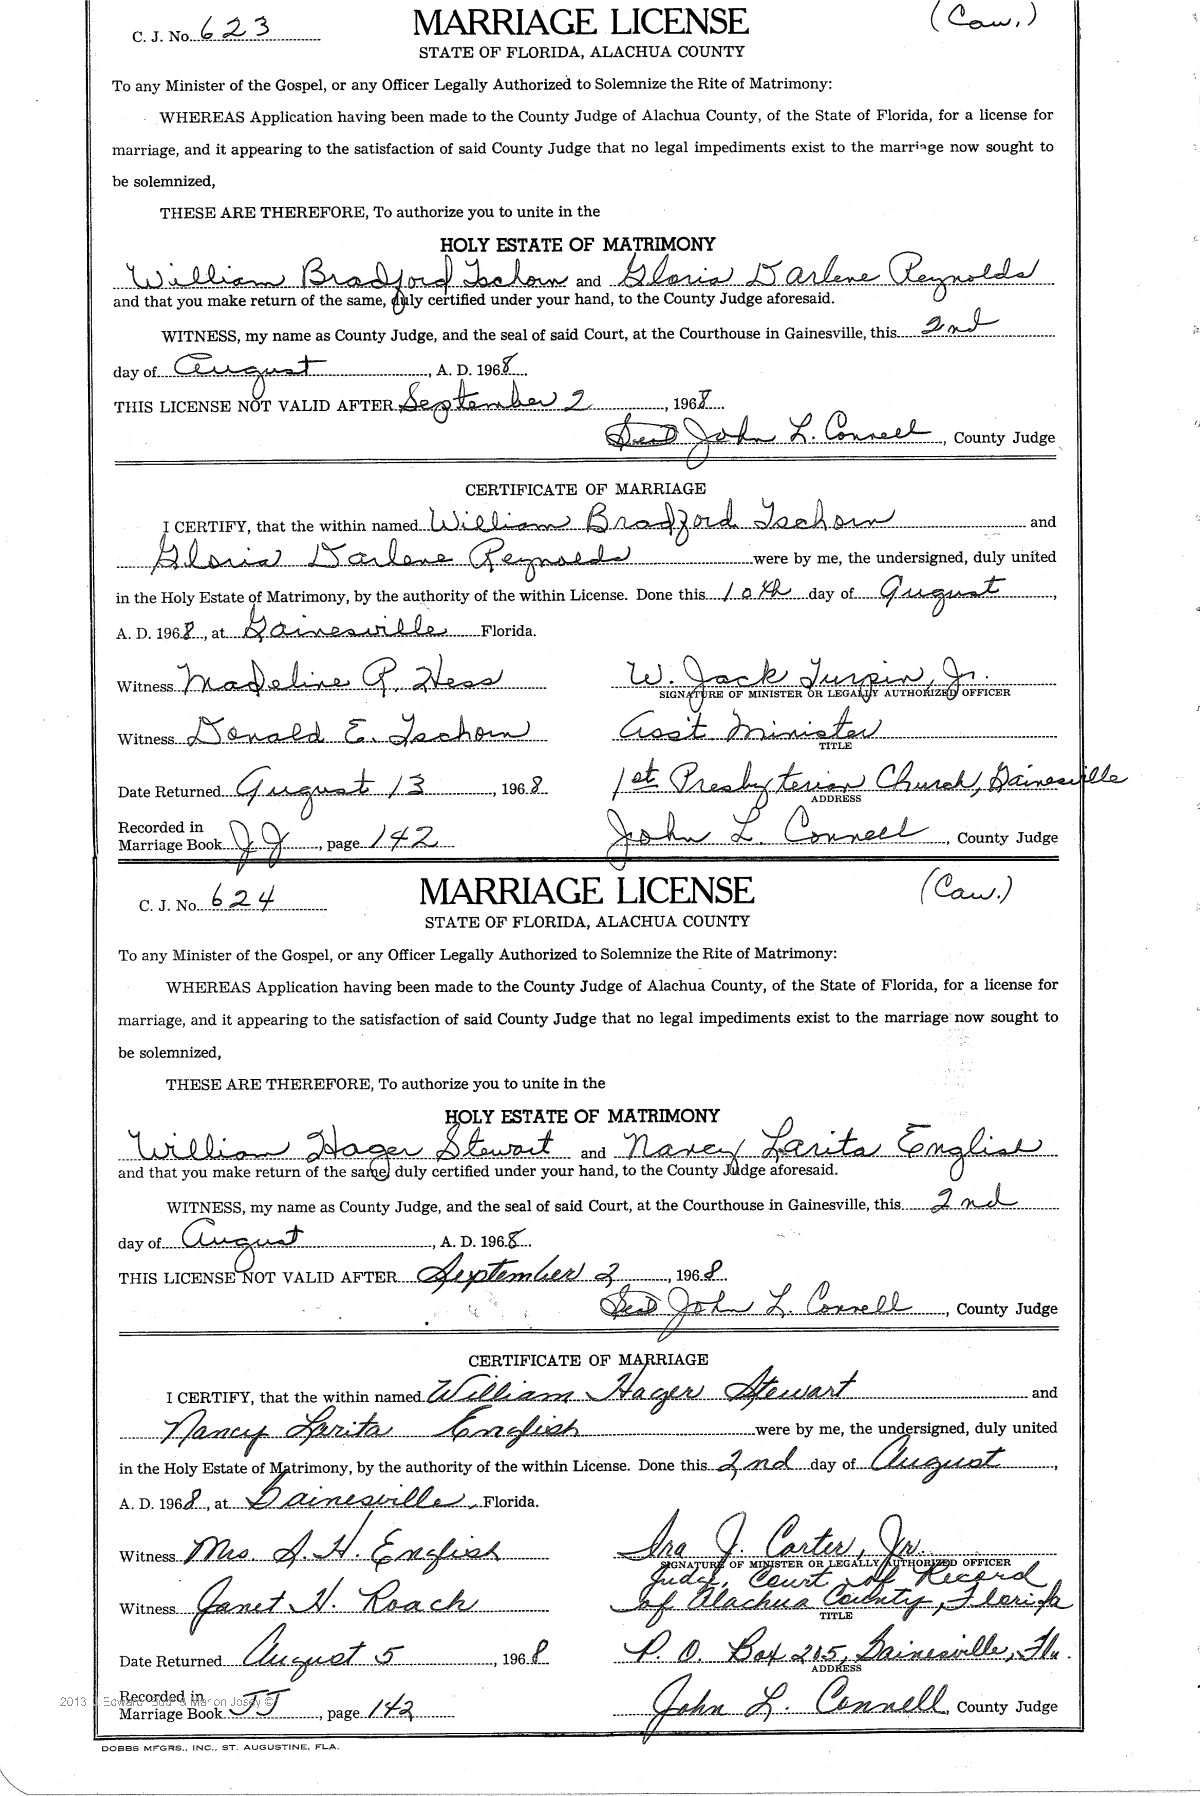 C. J. No. 623 MARRIAGE LICENSE (Caw.)
STATE OF FLORIDA, ALACHUA COUNTY
To any Minister of the Gospel, or any Officer Legally Authorized to Solemnize the Rite of Matrimony:
WHEREAS Application having been made to the County Judge of Alachua County, of the State of Florida, for a license for
marriage, and it appearing to the satisfaction of said County Judge that no legal impediments exist to the marriage now sought to
be solemnized,
THESE ARE THEREFORE, To authorize you to unite in the
HOLY ESTATE OF MATRIMONY
William Bradford Tschorn and Gloria Darlene Reynolds
and that you make return of the same, duly certified under your hand, to the County Judge aforesaid.
WITNESS, my name as County Judge, and the seal of said Court, at the Courthouse in Gainesville, this 2nd
day of August, A. D. 1968
THIS LICENSE NOT VALID AFTER September 2, 1968
Seal John L. Connell, County Judge
CERTIFICATE OF MARRIAGE
I CERTIFY, that the within named William Bradford Tschorn and
Gloria Darlene Reynolds were by me, the undersigned, duly united
in the Holy Estate of Matrimony, by the authority of the within License. Done this 10th day of August,
A. D. 1968, at Gainesville Florida.
Witness Madeline P. Hess W. Jack Turpin, Jr.
SIGNATURE OF MINISTER OR LEGALLY AUTHORIZED OFFICER
Witness Donald E. Tschorn Asst Minister
TITLE
Date Returned August 13, 1968 1st Presbyterian Church, Gainesville
ADDRESS
Recorded in
Marriage Book JJ, page 142 John L. Connell, County Judge
C. J. No. 624 MARRIAGE LICENSE (Caw.)
STATE OF FLORIDA, ALACHUA COUNTY
To any Minister of the Gospel, or any Officer Legally Authorized to Solemnize the Rite of Matrimony:
WHEREAS Application having been made to the County Judge of Alachua County, of the State of Florida, for a license for
marriage, and it appearing to the satisfaction of said County Judge that no legal impediments exist to the marriage now sought to
be solemnized,
THESE ARE THEREFORE, To authorize you to unite in the
HOLY ESTATE OF MATRIMONY
William Hager Stewart and Nancy Larita English
and that you make return of the same, duly certified under your hand, to the County Judge aforesaid.
WITNESS, my name as County Judge, and the seal of said Court, at the Courthouse in Gainesville, this 2nd
day of August, A. D. 1968
THIS LICENSE NOT VALID AFTER September 2, 1968
Seal John L. Connell, County Judge
CERTIFICATE OF MARRIAGE
I CERTIFY, that the within named William Hager Stewart and
Nancy Larita English were by me, the undersigned, duly united
in the Holy Estate of Matrimony, by the authority of the within License. Done this 2nd day of August,
A. D. 1968, at Gainesville, Florida.
Witness Mrs. S. H. English Ira J. Carter, Jr.
SIGNATURE OF MINISTER OR LEGALLY AUTHORIZED OFFICER
Judge, Court of Record
Witness Janet H. Roach of Alachua County, Florida
TITLE
Date Returned August 5, 1968 P. O. Box 215, Gainesville, Fla.
ADDRESS
Recorded in
Marriage Book JJ, page 142 John L. Connell, County Judge
DOBBS MFGRS., INC., ST. AUGUSTINE, FLA.